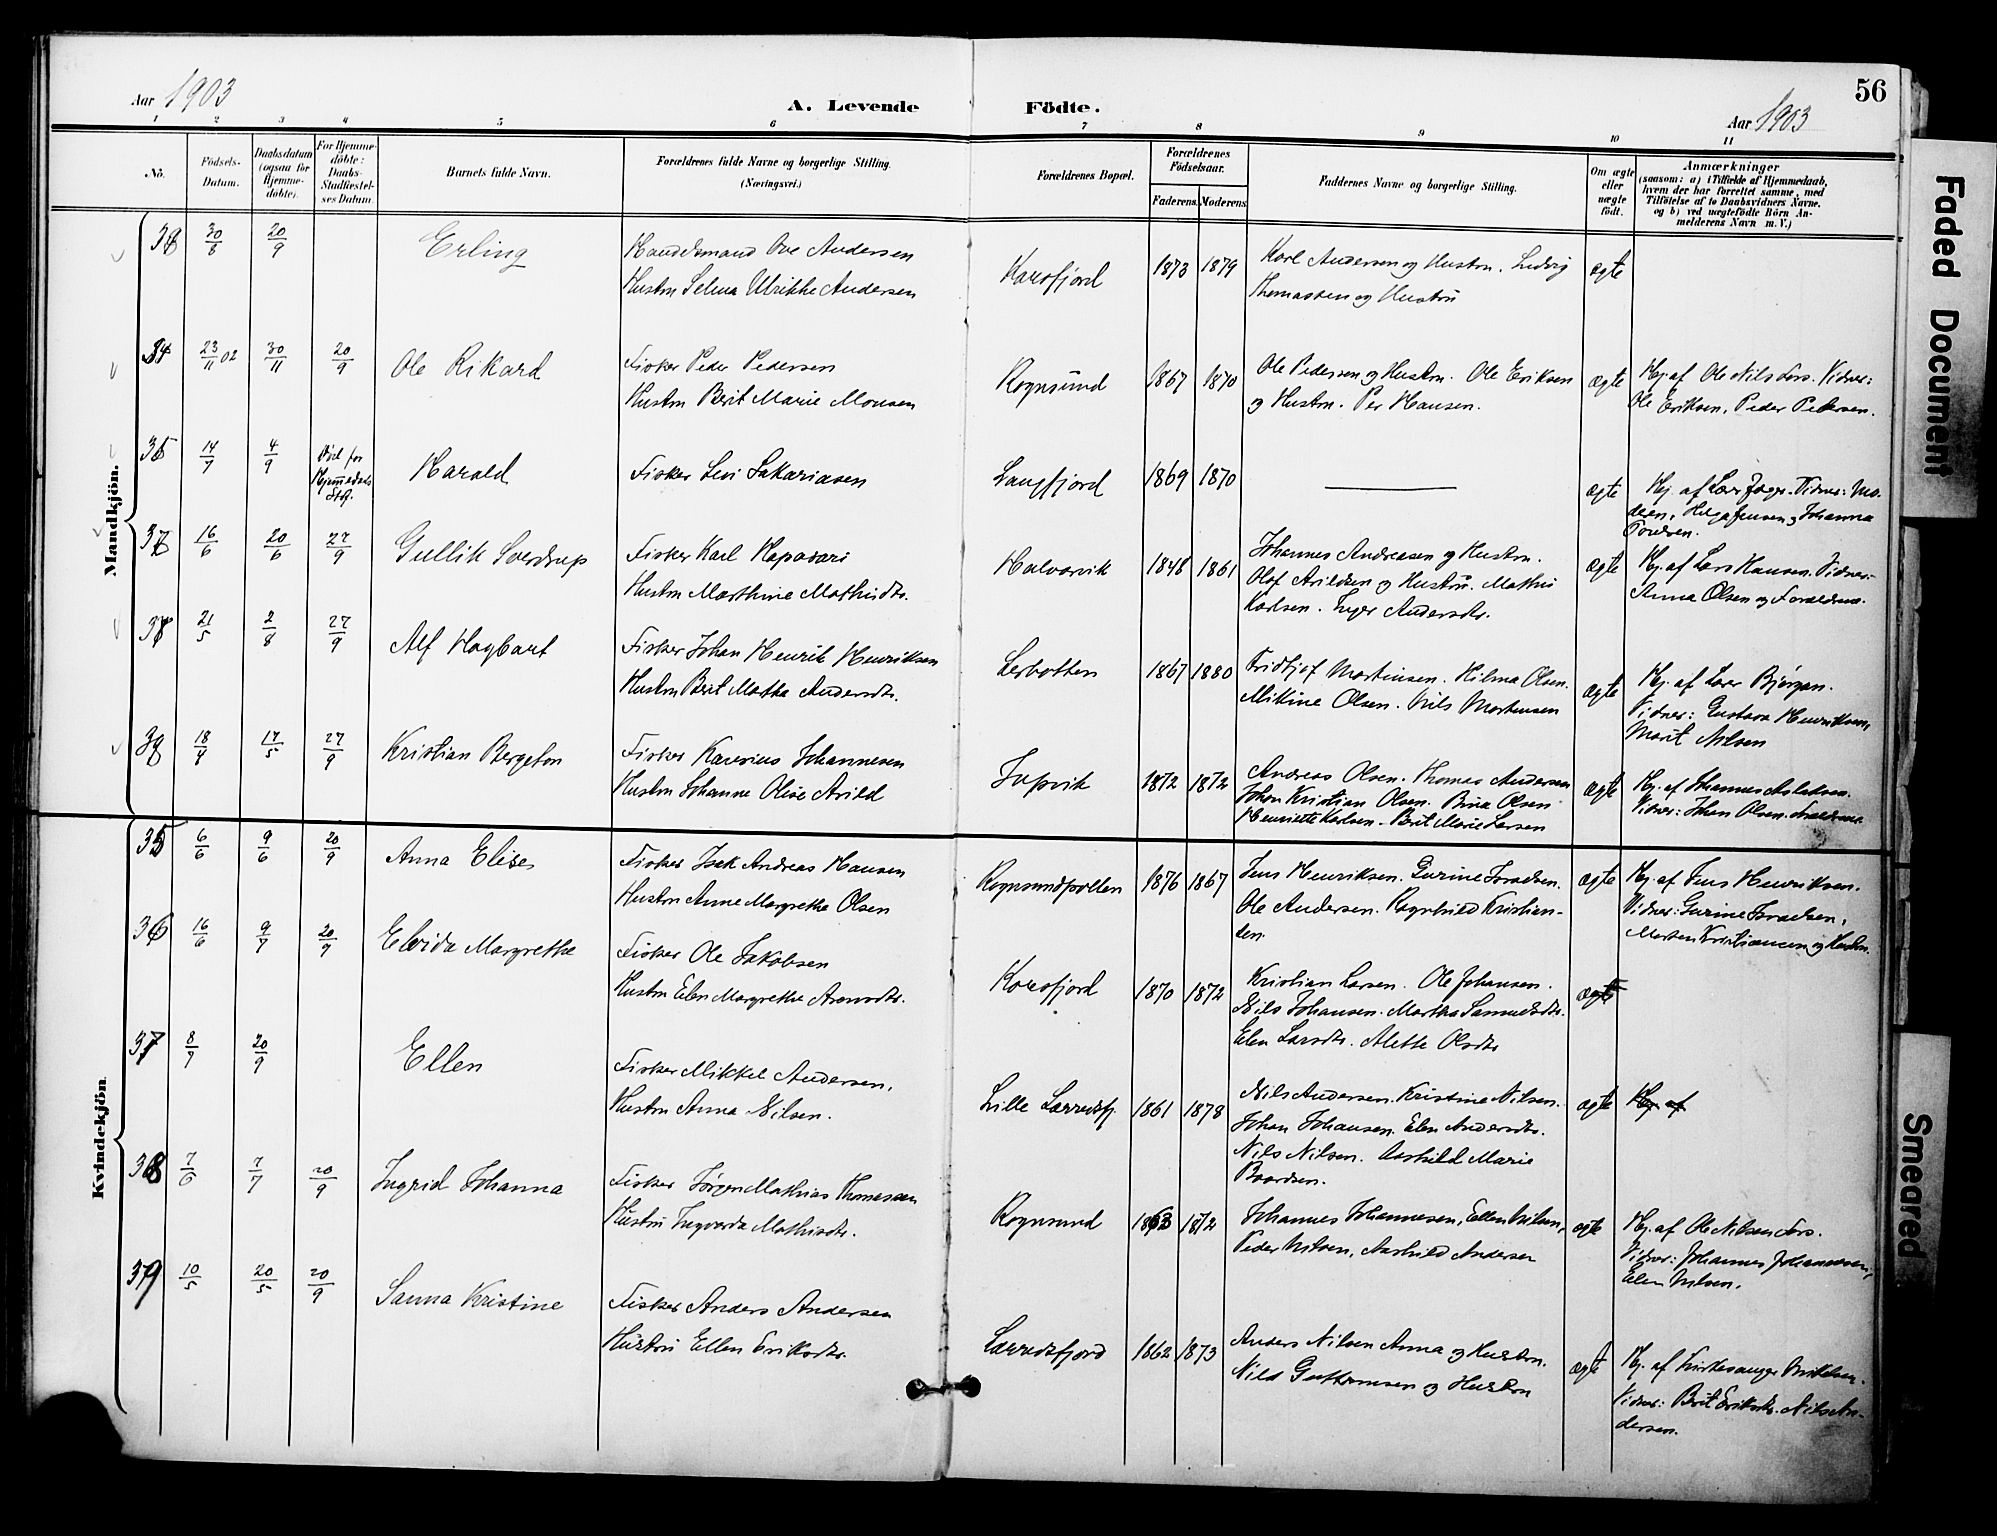 56
Aar 1903
A. Levende Födte.
Aar 1903
1 2 3 4 5 6 7 8 9 10 11
Nō.
Födsels-
Datum.
Daabsdatum
(ogsaa for
Hjemme-
döbte).
For Hjemme-
döbte:
Daabs-
Stadfæstel-
ses Datum.
Barnets fulde Navn.
Forældrenes fulde Navne og borgerlige Stilling.
(Næringsvei.)
Forældrenes Bopæl.
Forældrenes
Födselsaar.
Faderens.
Moderens.
Faddernes Navne og borgerlige Stilling.
Om ægte
eller
uægte
födt.
Anmærkninger
(saasom: a) i Tilfælde af Hjemmedaab,
hvem der har forrettet samme, med
Tilföielse af to Daabsvidners Navne.
og b) ved uægtefödte Börn An-
melderens Navn m. V.)
Mandkjön.
30/8 20/9 Erling
Handelsmand Ove Andersen
Hustru Selma Ulrikke Andersen
Korsfjord 1873 1879
Karl Andersen og Hustru. Ludvig
Thomassen og Hustru
ægte
34 23/11 02 30/11 20/9 Ole Rikard
Fisker Peder Pedersen
Hustru Berit Marie Monsen
Rognsund 1867 1870
Ole Pedersen og Hustru. Ole Eriksen
og Hustru. Per Hansen.
ægte
Hj. af Ole Nils Fors. Vidner:
Ole Eriksen, Peder Pedersen.
35 14/7 4/9 Död før
Hjemmedaabs
Stdf.
Harald
Fisker Levi Sakariasen
Langfjord 1869 1870
ægte
16/6 20/6 27/9 Gullik Sverdrup
Fisker Karl Kaposari
Hustru Marthine Mathisdtr.
Halvarvik 1848 1861
Johannes Andreasen og Hustru.
Olaf Arildsen og Hustru. Mathis
Karlsen. Inger Andersdtr.
ægte
Hj. af Lars Hansen. Vidner:
Anna Olsen og Forældrene.
21/5 2/8 27/9 Alf Hagbart
Fisker Johan Henrik Henriksen
Hustru Berit Matha Andersdtr.
Lerbotten 1867 1880
Fridtjof Martinsen. Hilma Olsen.
Mikine Olsen. Nils Mortensen
ægte
Hj. af Lærer Bjørgan.
Vidner: Gustava Henriksen,
Marit Nilsen
18/4 17/5 27/9 Kristian Bergeton
Fisker Laurius Johannesen
Hustru Johanne Olise Arild
Jupvik 1872 1872
Andreas Olsen. Thomas Andersen
Johan Kristian Olsen. Brina Olsen
Henriette Karlsen. Berit Marie Larsen
ægte
Hj. af Johannes Aslaksen.
Vidner: Johan Olsen. Forældrene
Kvindekjön.
35 6/6 9/6 20/9 Anna Elise
Fisker Isak Andreas Hansen
Hustru Anne Margrethe Olsen
Rognsundpollen 1876 1867
Jens Henriksen. Gurine Isaelsen.
Ole Andersen. Ragnhild Kristian-
sen.
ægte
Hj. af Jens Henriksen.
Vidner: Gurine Israelsen,
Morten Kristiansen og Hustru.
36 16/6 9/7 20/9 Elvida Margrethe
Fisker Ole Jakobsen
Hustru Elen Margrethe Aronsdtr.
Korsfjord 1870 1872
Kristian Larsen. Ole Johansen.
Nils Johansen. Martha Samuelsdtr.
Elen Larsdtr. Alette Olsdtr
ægte
37 8/7 20/9 Ellen
Fisker Mikkel Andersen.
Hustru Anna Nilsen.
Lille Lerredsfj. 1861 1878
Nils Andersen. Kristine Nilsen.
Johan Johansen. Elen Andersdtr.
Nils Nilsen. Aashild Marie
Baardsen.
ægte
Hj. af
38 7/6 7/7 20/9 Ingrid Johanna
Fisker Jørgen Mathias Thomassen
Hustru Ingvarda Mathisdtr.
Rognsund 1863 1872
Johannes Johannesen, Ellen Nilsen,
Peder Nilsen, Aashild Andersen
ægte
Hj. af Ole Nilsen Fors.
Vidner: Johannes Johannesen,
Elen Nilsen.
39 10/5 20/5 20/9 Sanna Kristine
Fisker Anders Andersen
Hustru Ellen Eriksdtr.
Lerredsfjord 1862 1873
Anders Nilsen Anna og Hustru.
Nils Guttormsen og Hustru
ægte
Hj. af Kirkesanger Mikkelsen.
Vidner: Berit Eriksdtr. Nils An-
dersen.
Faded Document
Smeared